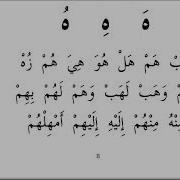 هَ هِ هُ
هَمْ هَلْ هُوَ هِيَ هُمْ زُهْ
وَهَبْ لَهَبْ وَهَمْ لَهُمْ بِهِمْ
مِنْهُمْ إِلَيْهِ إِلَيْهِمْ أَمْهِلْهُمْ